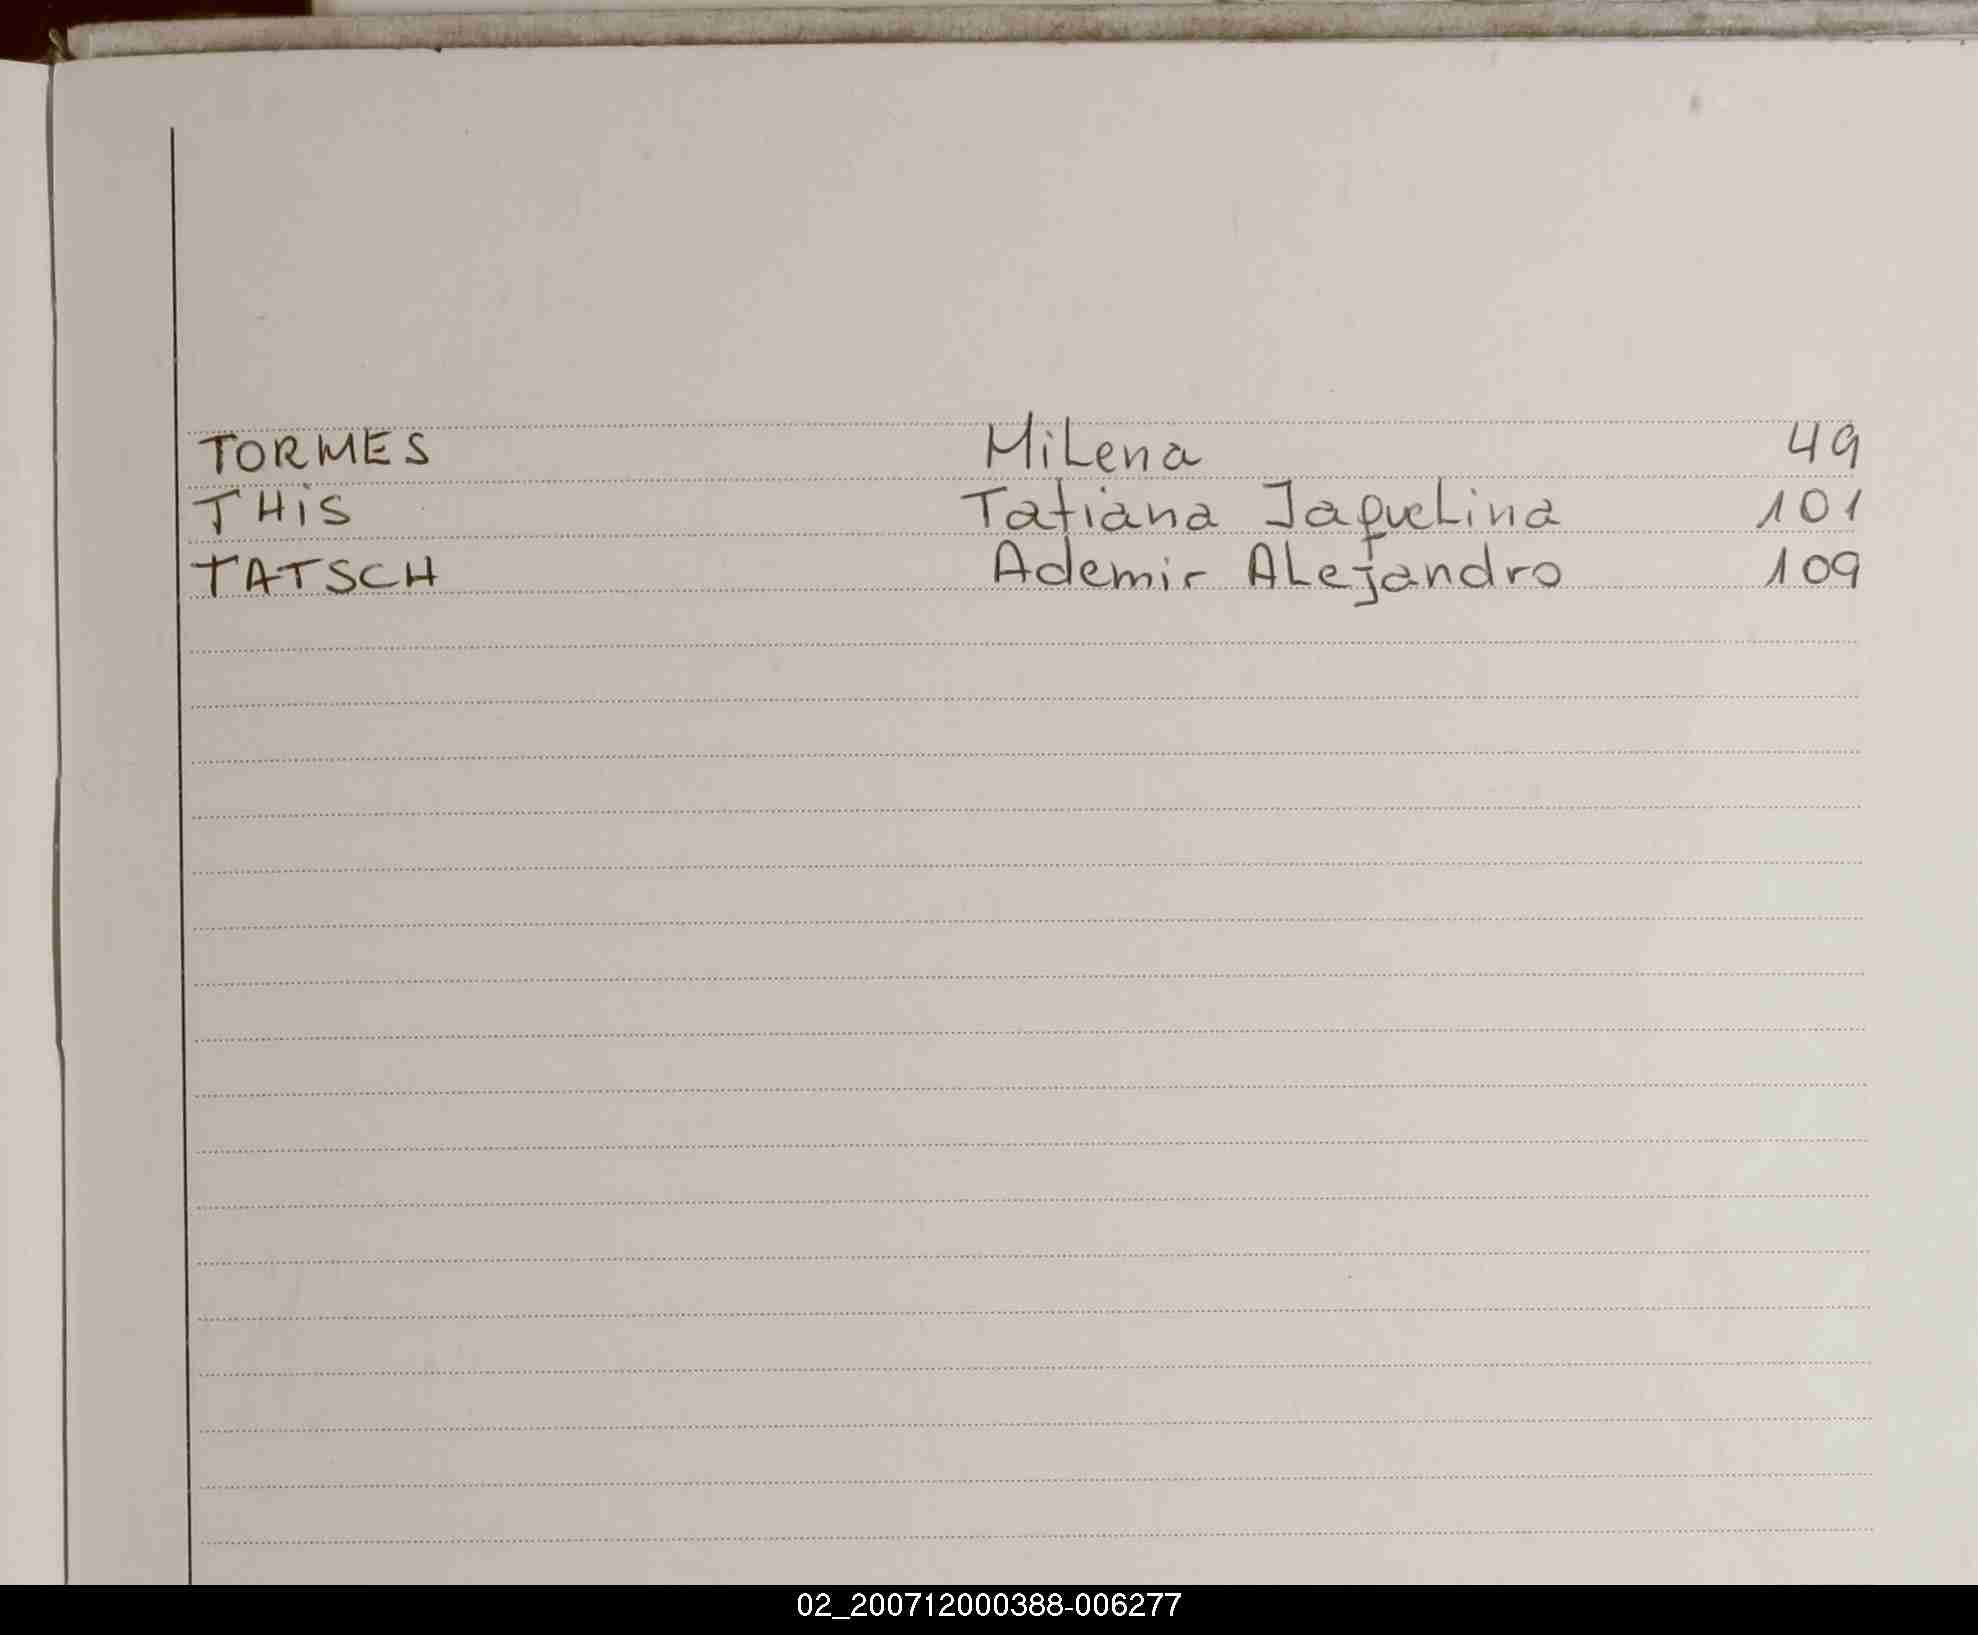 TORMES Milena 49
THiS Tatiana Jaquelina 101
TATSCH Ademir Alejandro 109
02_200712000388-006277